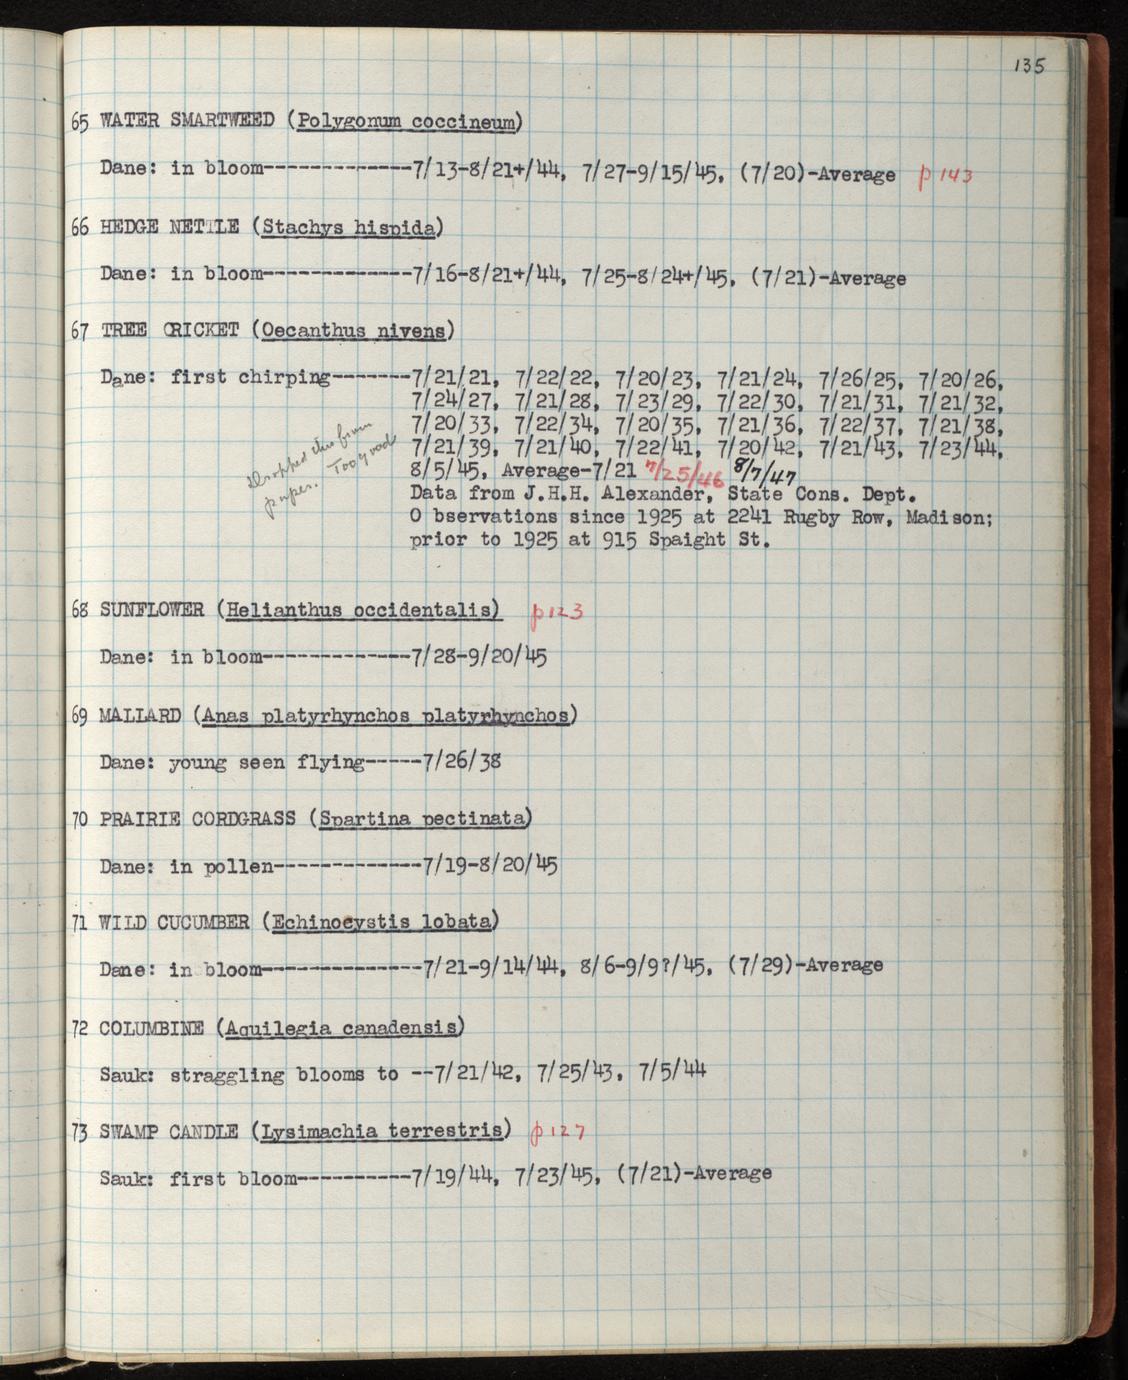 135
65 WATER SMARTWEED (Polygonum coccineum)
Dane: in bloom-------------7/13-8/21+/44, 7/27-9/15/45, (7/20)-Average p 143
66 HEDGE NETTLE (Stachys hispida)
Dane: in bloom-------------7/16-8/21+/44, 7/25-8/24+/45, (7/21)-Average
67 TREE CRICKET (Oecanthus nivens)
Dane: first chirping-------7/21/21, 7/22/22, 7/20/23, 7/21/24, 7/26/25, 7/20/26,
7/24/27, 7/21/28, 7/23/29, 7/22/30, 7/21/31, 7/21/32,
7/20/33, 7/22/34, 7/20/35, 7/21/36, 7/22/37, 7/21/38,
7/21/39, 7/21/40, 7/22/41, 7/20/42, 7/21/43, 7/23/44,
8/5/45, Average-7/21 7/25/46 8/7/47
Data from J.H.H. Alexander, State Cons. Dept.
O bservations since 1925 at 2241 Rugby Row, Madison;
prior to 1925 at 915 Spaight St.
Dropped this from
paper. Too good
68 SUNFLOWER (Helianthus occidentalis) p 123
Dane: in bloom-------------7/28-9/20/45
69 MALLARD (Anas platyrhynchos platyrhynchos)
Dane: young seen flying-----7/26/38
70 PRAIRIE CORDGRASS (Spartina pectinata)
Dane: in pollen-------------7/19-8/20/45
71 WILD CUCUMBER (Echinocystis lobata)
Dane: in bloom--------------7/21-9/14/44, 8/6-9/9?/45, (7/29)-Average
72 COLUMBINE (Aquilegia canadensis)
Sauk: straggling blooms to --7/21/42, 7/25/43, 7/5/44
73 SWAMP CANDLE (Lysimachia terrestris) p 127
Sauk: first bloom----------7/19/44, 7/23/45, (7/21)-Average